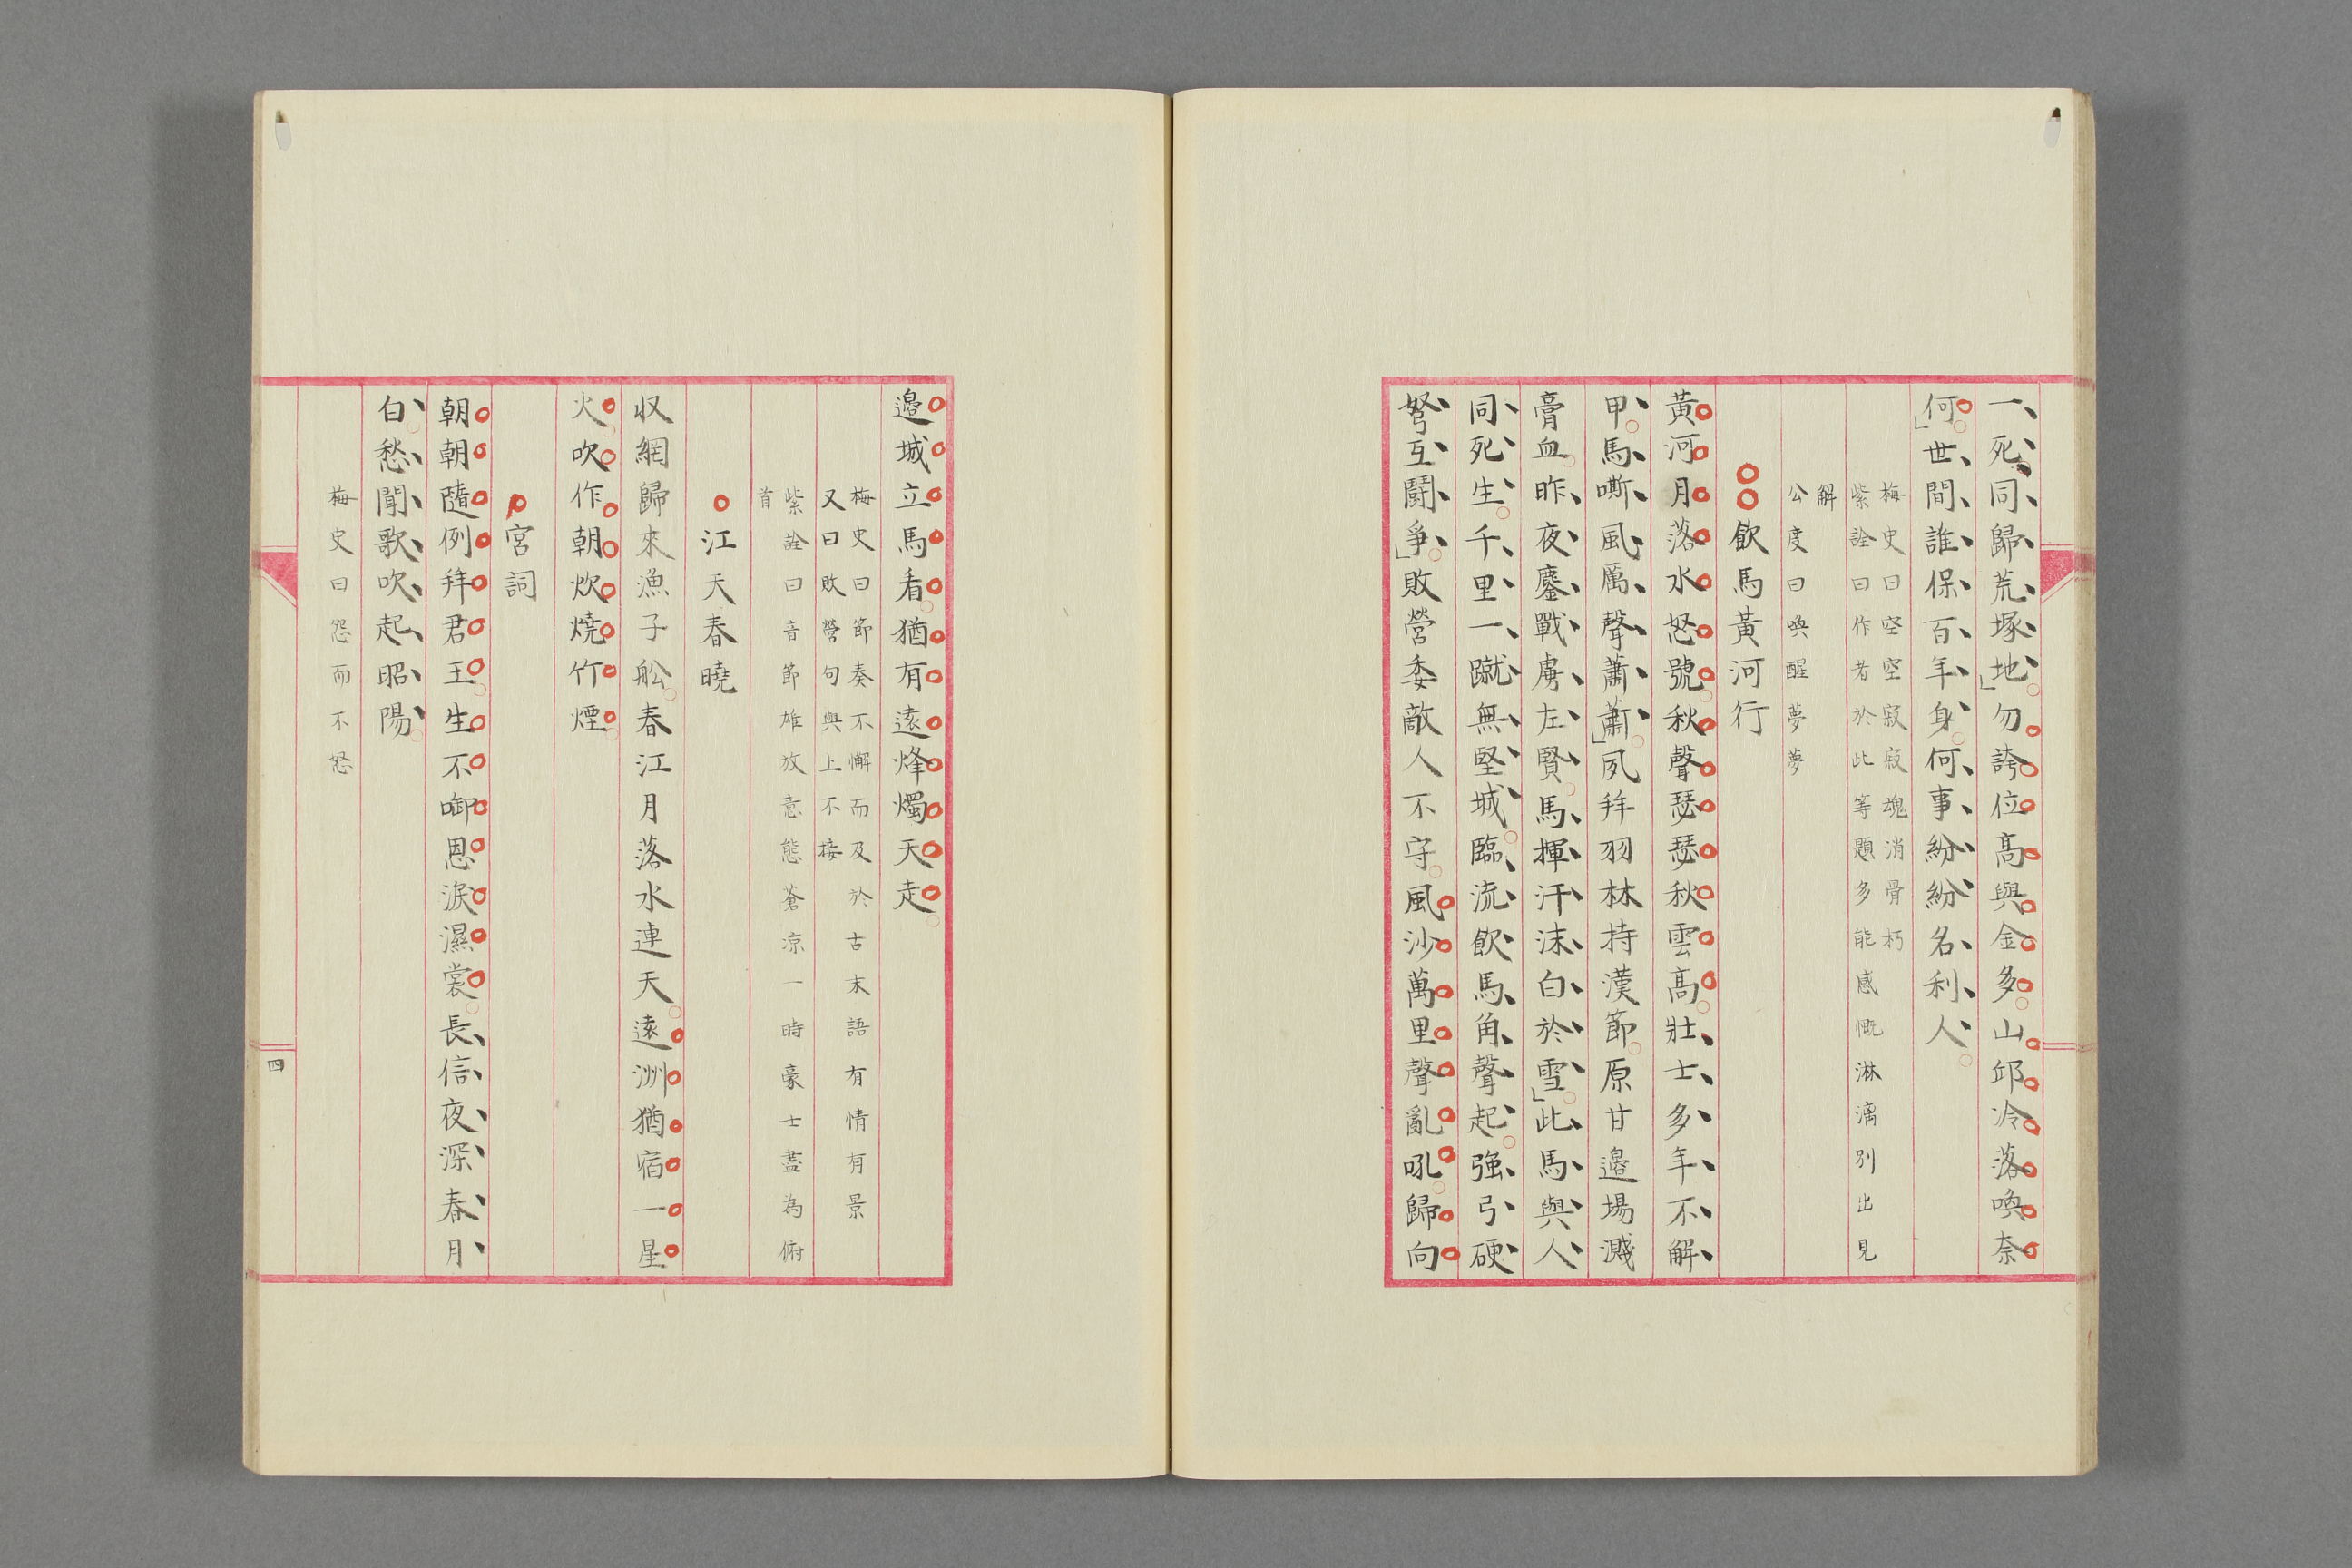 一死同歸荒塚地勿誇位高與金多山邱冷落喚奈
何世間誰保百年身何事紛紛名利人
梅史曰空空寂寂魂消骨朽
紫詮曰作者於此等題多能感慨淋漓別出見
解
公度曰喚醒夢夢
飲馬黃河行
黃河月落水怒號秋聲瑟瑟秋雲高壯士多年不解
甲馬嘶風厲聲蕭蕭夙拜羽林持漢節原甘邊場濺
膏血昨夜鏖戰虜左賢馬揮汗沫白於雪此馬與人
同死生千里一蹴無堅城臨流飲馬角聲起強引硬
弩互鬪爭敗營委敵人不守風沙萬里聲亂吼歸向
邊城立馬看猶有遠烽燭天走
梅史曰節奏不懈而及於古末語有情有景
又曰敗營句與上不接
紫詮曰音節雄放意態蒼涼一時豪士盡為俯
首
江天春曉
収網歸來漁子舩春江月落水連天遠洲猶宿一星
火吹作朝炊燒竹煙
宮詞
朝朝隨例拜君王生不啣恩淚濕裳長信夜深春月
白愁聞歌吹起昭陽
梅史曰怨而不怒
四